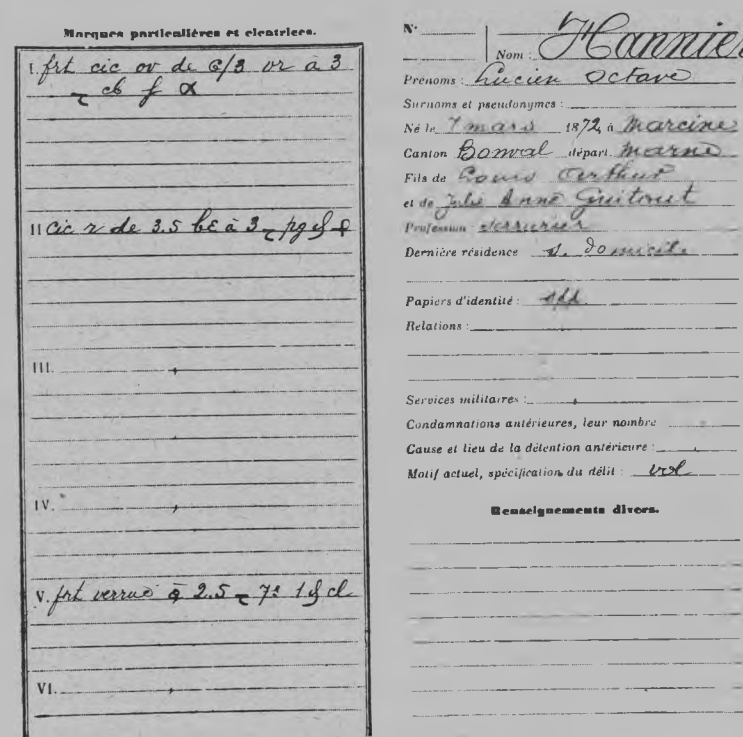 Marques particulières et cicatrices.
I. frt cic ov de 6/3 vr à 3
cb f α
II cic r de 3.5 bε à 3 pg
III.
IV.
V. frt verrue à 2.5 7e 1 cl
VI.
N°
Nom : Hannier
Prénoms : Lucien Octave
Surnoms et pseudonymes :
Né le 7 mars 1872, à Marcine
Canton Bonval départ. Marne
Fils de Louis Arthur
et de Julie Anne Guitout
Profession serrurier
Dernière résidence s. domicile
Papiers d'identité :
Relations :
Services militaires :
Condamnations antérieures, leur nombre
Cause et lieu de la détention antérieure :
Motif actuel, spécification du délit : vol
Renseignements divers.